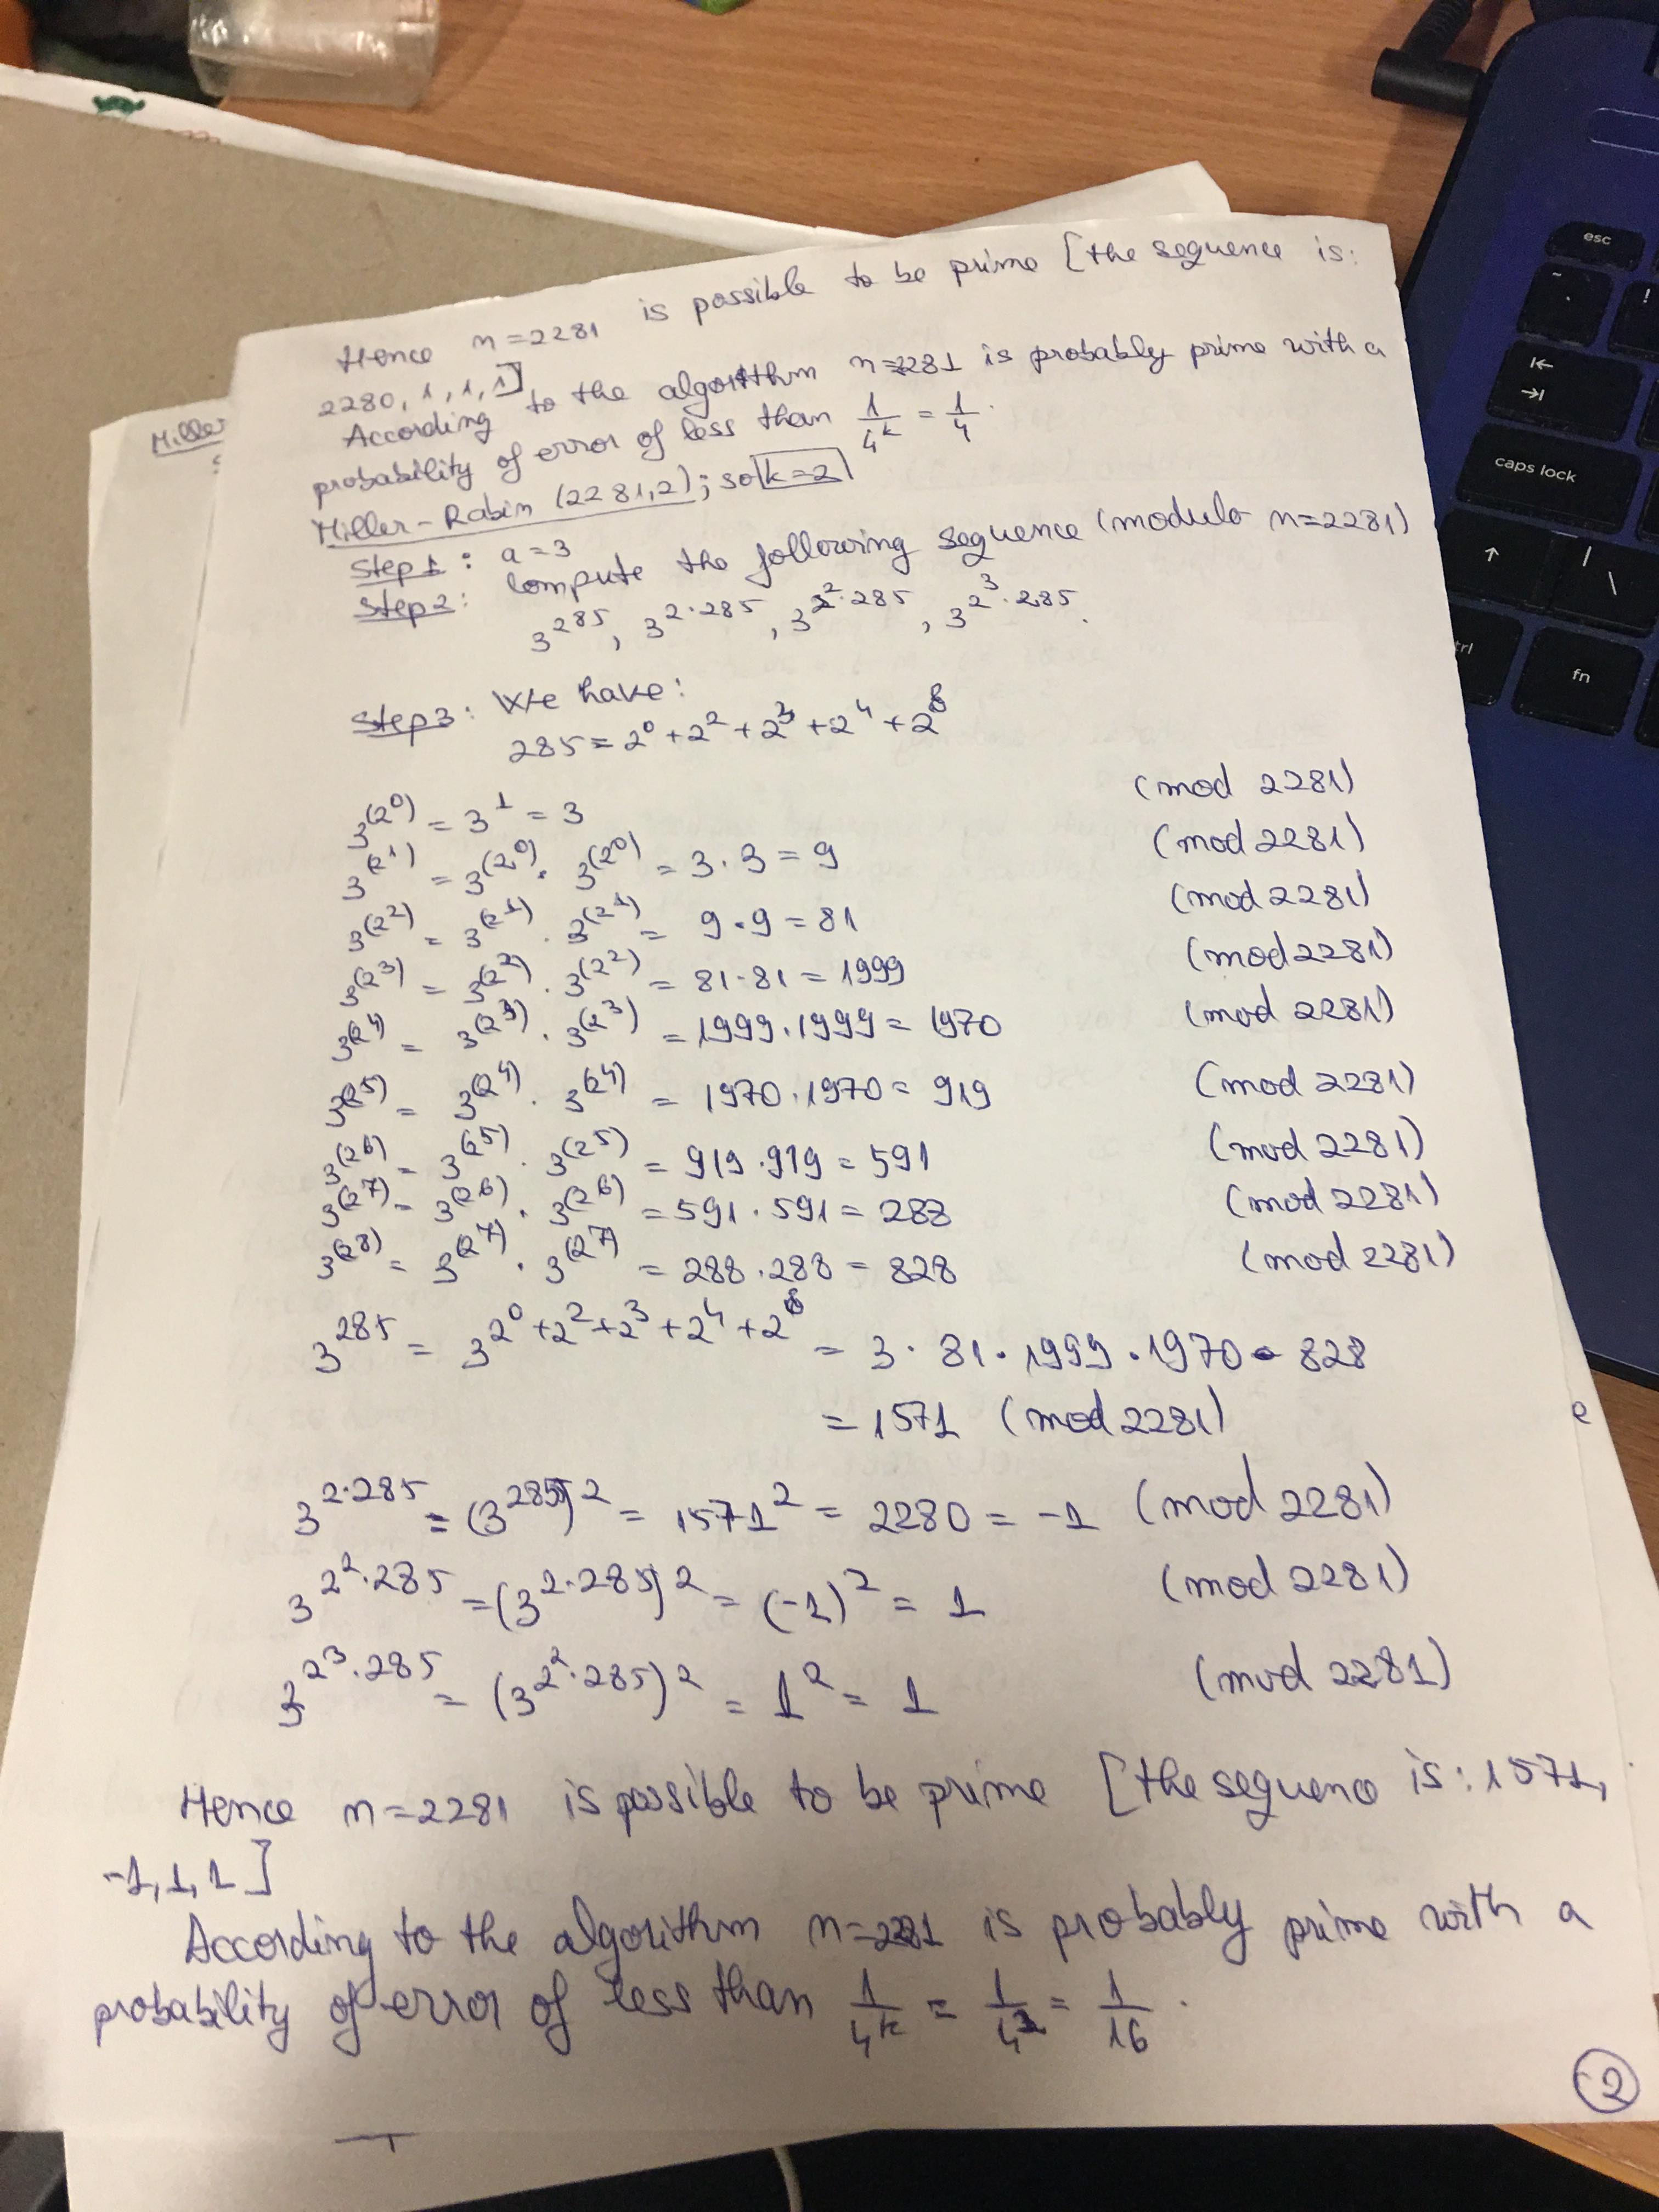 Hence n=2281 is possible to be prime [the sequence is:
2280, 1, 1, 1]
According to the algorithm n=2281 is probably prime with a
probability of error of less than 1/4^k = 1/4.
Miller-Rabin (2281,2); so k=2
Step 1: a=3
Step 2: Compute the following sequence (modulo n=2281)
3^285, 3^2·285, 3^2^2·285, 3^2^3·285.
Step 3: We have:
285 = 2^0 + 2^2 + 2^3 + 2^4 + 2^8
3^(2^0) = 3^1 = 3 (mod 2281)
3^(2^1) = 3^(2^0) · 3^(2^0) = 3·3 = 9 (mod 2281)
3^(2^2) = 3^(2^1) · 3^(2^1) = 9·9 = 81 (mod 2281)
3^(2^3) = 3^(2^2) · 3^(2^2) = 81·81 = 1999 (mod 2281)
3^(2^4) = 3^(2^3) · 3^(2^3) = 1999·1999 = 1970 (mod 2281)
3^(2^5) = 3^(2^4) · 3^(2^4) = 1970·1970 = 919 (mod 2281)
3^(2^6) = 3^(2^5) · 3^(2^5) = 919·919 = 591 (mod 2281)
3^(2^7) = 3^(2^6) · 3^(2^6) = 591·591 = 288 (mod 2281)
3^(2^8) = 3^(2^7) · 3^(2^7) = 288·288 = 828 (mod 2281)
3^285 = 3^2^0+2^2+2^3+2^4+2^8 = 3·81·1999·1970·828
= 1571 (mod 2281)
3^2·285 = (3^285)^2 = 1571^2 = 2280 = -1 (mod 2281)
3^2^2·285 = (3^2·285)^2 = (-1)^2 = 1 (mod 2281)
3^2^3·285 = (3^2^2·285)^2 = 1^2 = 1 (mod 2281)
Hence n=2281 is possible to be prime [the sequence is: 1571,
-1, 1, 1]
According to the algorithm n=2281 is probably prime with a
probability of error of less than 1/4^k = 1/4^2 = 1/16.
2
Miller
e
esc
caps lock
fn